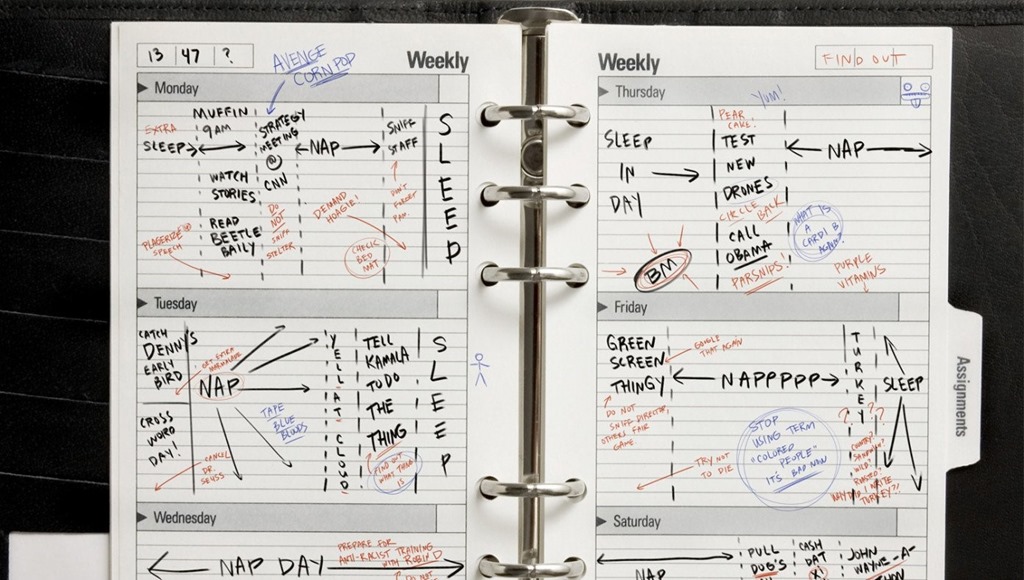 13 | 47 | ?
AVENGE
CORNPOP
Weekly
Monday
EXTRA
SLEEP
MUFFIN
9AM
WATCH
STORIES
READ
BEETLE
BAILY
PLAGERIZE
SPEECH
STRATEGY
MEETING
@
CNN
DO
NOT
SNIFF
STELTER
NAP
DEMAND
HOAGIE!
CHECK
BED
MAT
SNIFF
STAFF
DON'T
FORGET
PAM.
SLEEP
Tuesday
CATCH
DENNY'S
EARLY
BIRD
CROSS
WORD
DAY!
GET EXTRA
MARMALADE
NAP
CANCEL
DR.
SEUSS
TAPE
BLUE
BLOODS
YELL AT CLOUD
TELL
KAMALA
TO DO
THE
THING
FIND OUT
WHAT THING
IS
SLEEP
Wednesday
NAP DAY
PREPARE FOR
ANTI-RACIST TRAINING
WITH ROBIN D
DO NOT
Weekly
FIND OUT
Thursday
SLEEP
IN
DAY
BM
Yum!
PEAR
CAKE!
TEST
NEW
DRONES
CIRCLE BACK
CALL
OBAMA
PARSNIPS!
NAP
WHAT IS
A
CARDI B
AGAIN?
PURPLE
VITAMINS
Friday
GREEN
SCREEN
THINGY
GOOGLE
THAT AGAIN
DO NOT
SNIFF DIRECTOR,
OTHERS FAIR
GAME
TRY NOT
TO DIE
NAPPPPP
STOP
USING TERM
"COLORED
PEOPLE"
ITS BAD NOW
TURKEY
? ? ?
COUNTRY?
SANDWICH?
WILD?
ROASTED?
WHY DID I WRITE
TURKEY?!
SLEEP
Assignments
Saturday
NAP
PULL
DUG'S
CASH
DAT
JOHN
WAYNE-A-